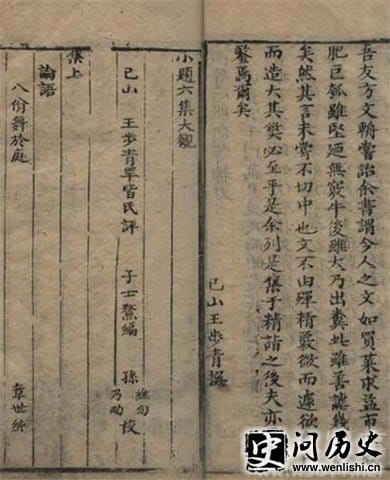 吾友方文輈嘗詒余書謂今人之文如買菜求益市
肥巨瓠雖堅廻無竅牛後雖大乃出糞此雖善謔幾
矣然其言未嘗不切中也文不由殫精嚴微而遽欲
而造大其獘必至乎是余列是集于精詣之後夫亦
鑒焉爾矣
己山王步青撰
小題六集大觀
己山 王步青罕皆氏評 子士鰲編 孫 維甸 乃 校
集上
論語
八佾舞於庭
章世純
问历史
www.wenlishi.cn